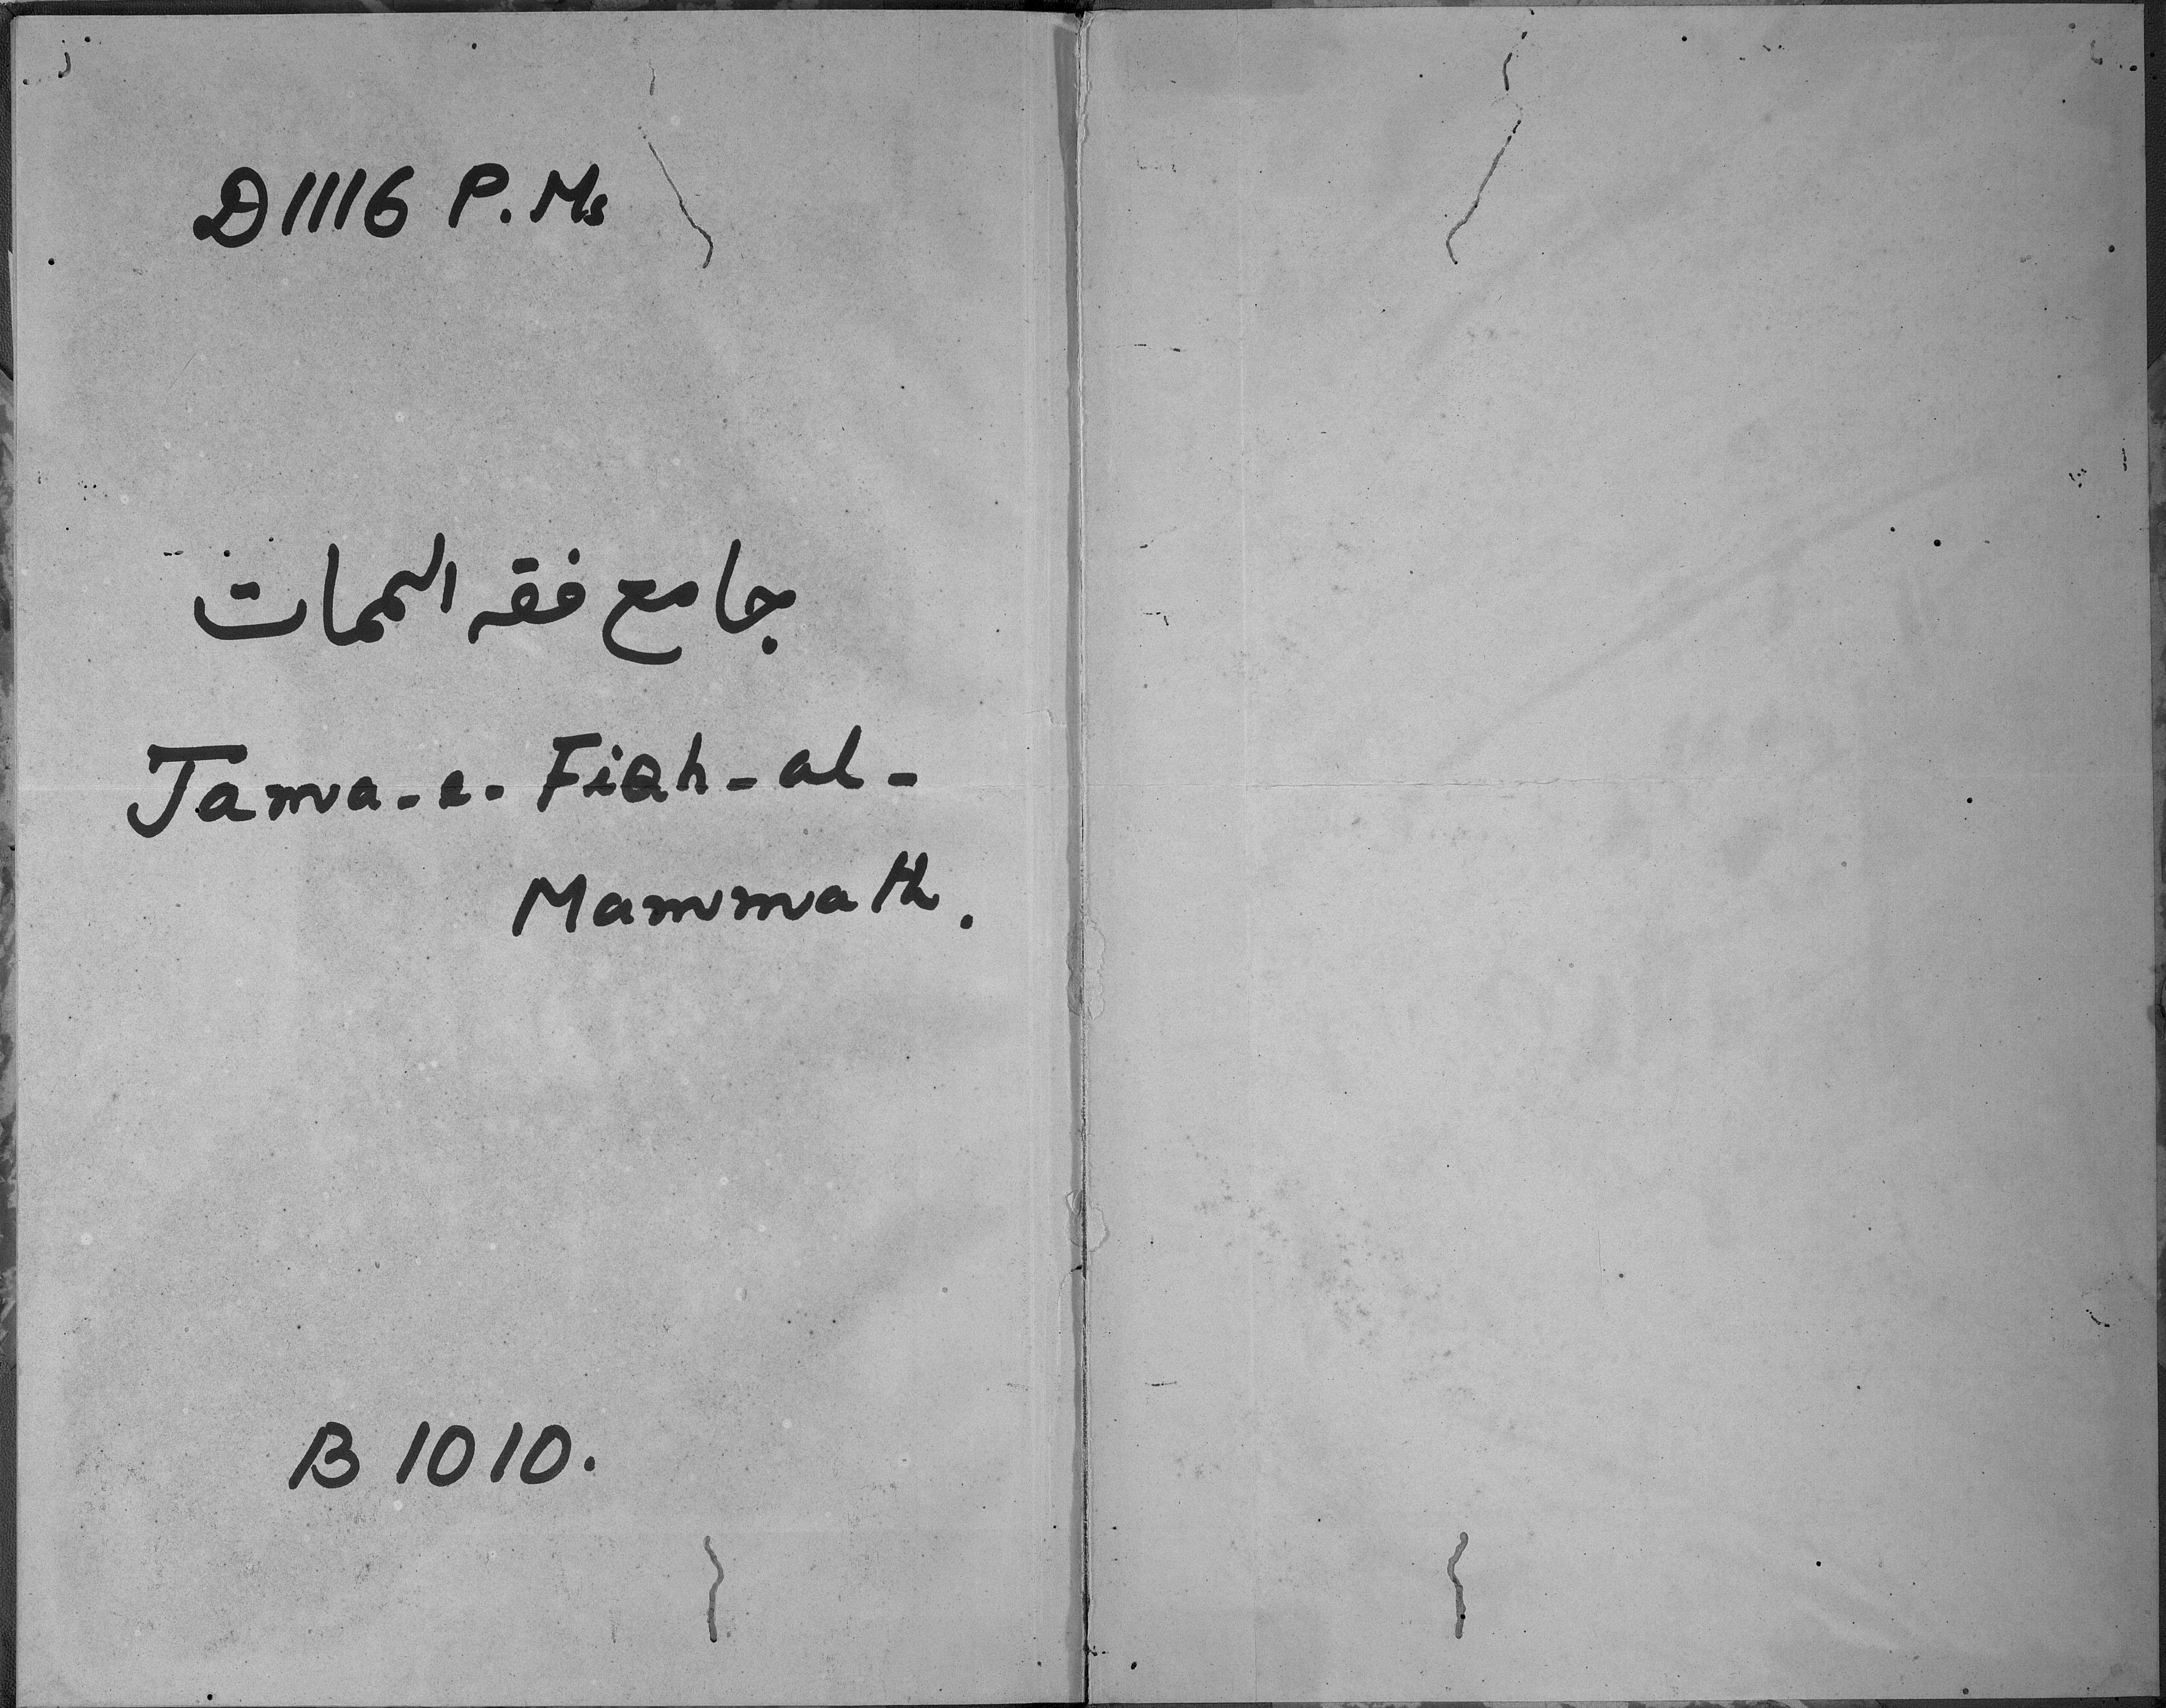 D 1116 P. Ms
جامع فقه الممات
Jama-e-Fiqh-al-
Mammath.
B 1010.